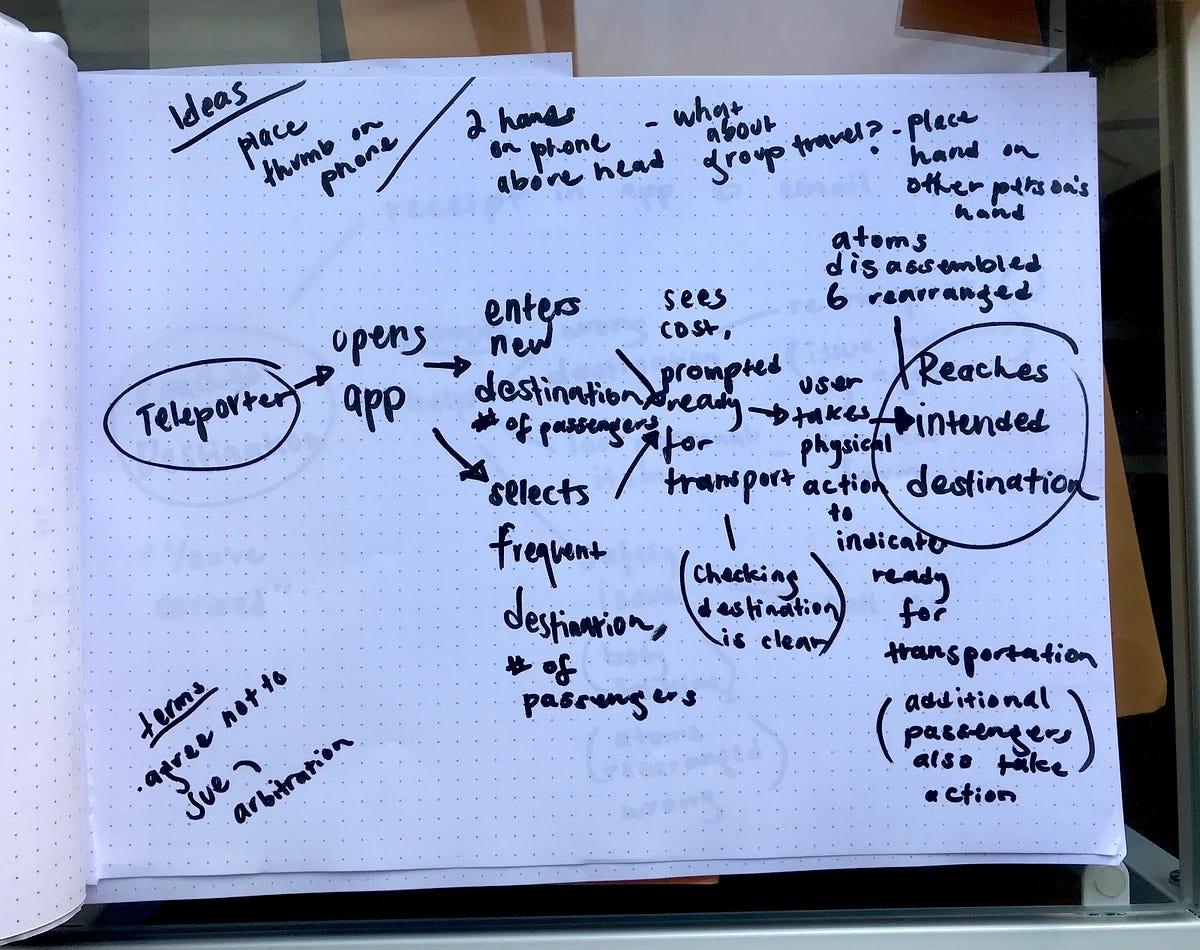 Ideas
place
thumb on
phone
2 hands
on phone
above head
- what
about
group travel?
- place
hand on
other person's
hand
Teleporter
opens
app
enters
new
destination,
# of passengers
selects
frequent
destination,
# of
passengers
sees
cost,
prompted
ready
for
transport
(checking
destination
is clear)
user
takes
physical
action
to
indicate
ready
for
transportation
(additional
passengers
also take
action
)
atoms
disassembled
& rearranged
Reaches
intended
destination
terms
. agree not to
sue
arbitration
receipt in app & email